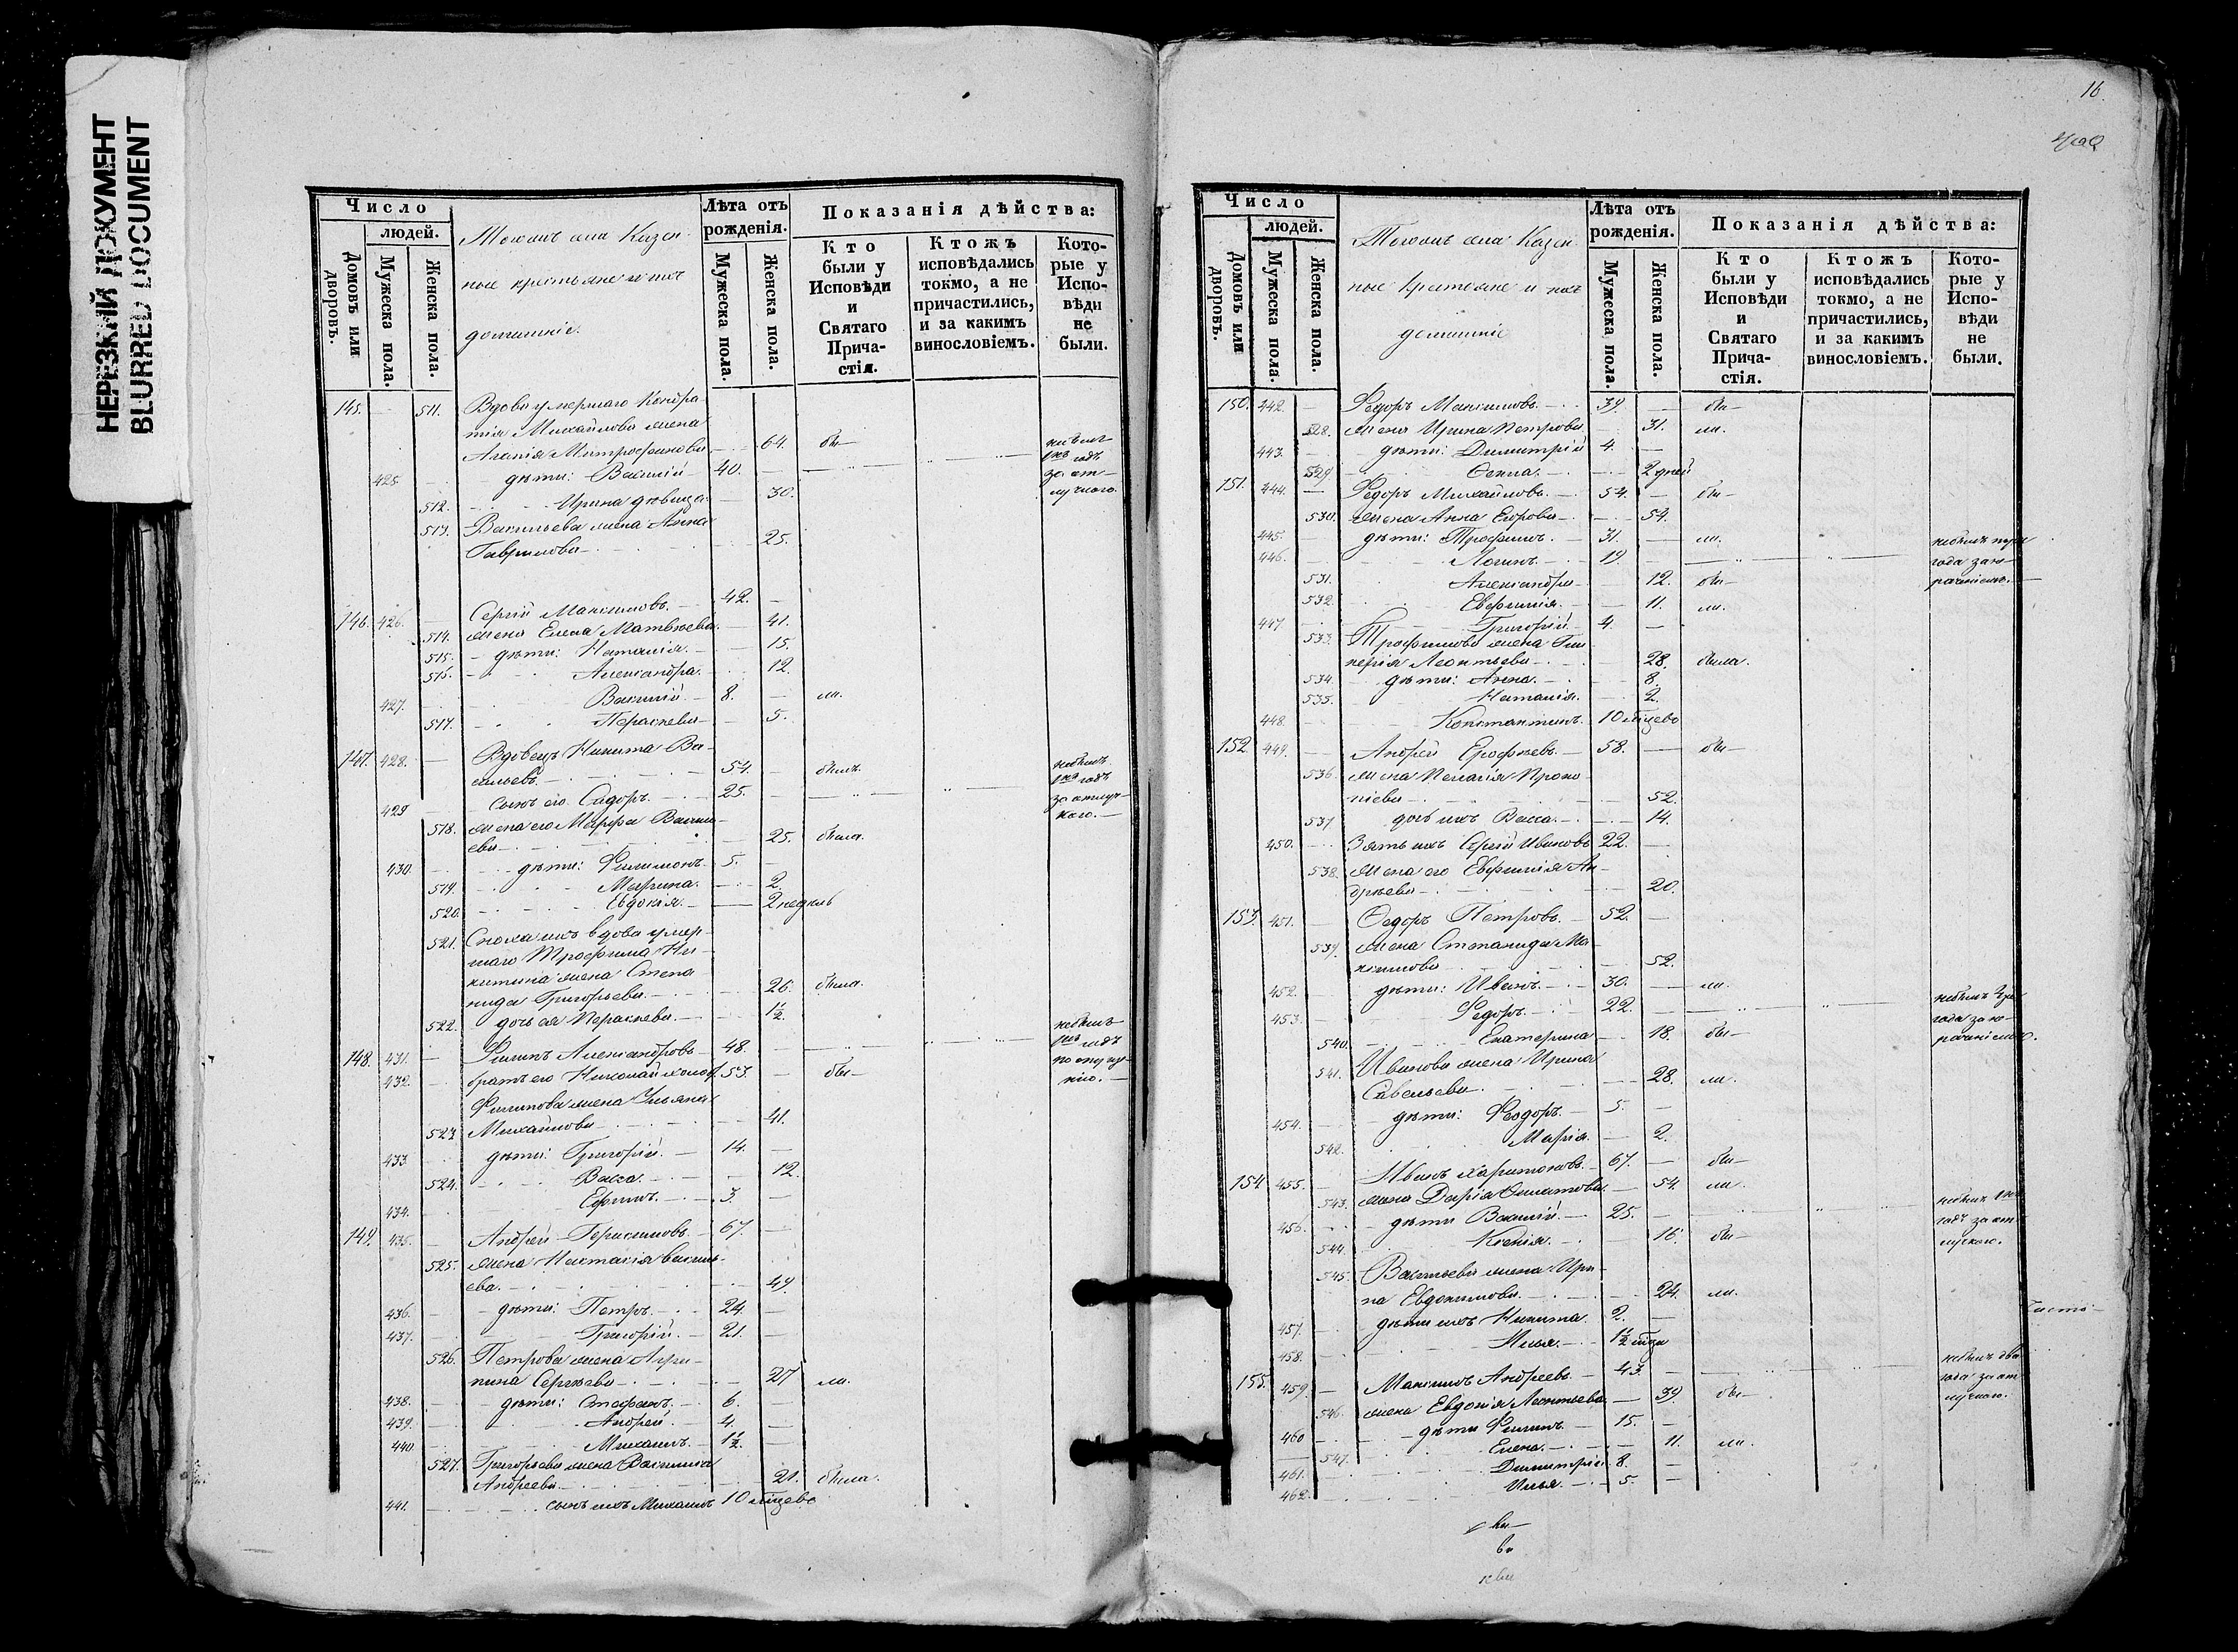 НЕРЕЗКИЙ ДОКУМЕНТ
BLURRED DOCUMENT
Число
людей.
Домовъ или дворовъ.
Мужеска пола.
Женска пола.
Казен-
ные крестьяне и ихъ
домашніе.
Лѣта отъ рожденія.
Мужеска пола.
Женска пола.
Показанія дѣйства:
Кто были у Исповѣди и Святаго Прича-стія.
Ктожъ исповѣдались токмо, а не причастились, и за какимъ винословіемъ.
Кото-рые у Испо-вѣди не были.
145. — 511. Вдова умершаго Кондра-
тія Михайлова жена
Агапія Митрофанова — 64. бы—
425. дѣти: Василій 40. —
512. Ирина дѣвица — 30.
513. Васильева жена Анна
Гаврилова — 25.
146. 426. — Сергій Максимовъ. — 42. —
514. жена Елена Матвѣева — 41.
515. дѣти: Наталія. — 15.
516. Александра. 12.
427. Василій. — 8. — ли.
517. Параскева — 5.
147. 428. — Вдовецъ Никита Ва-
сильевъ. — 54. — былъ.
429 сынъ его Сидоръ. — 25. —
518. жена его Марфа Василь-
ева — 25. была.
430. дѣти: Филимонъ. 5. —
519. Марина. — 2.
520. Евдокія. — 2 недѣль
521. Сноха ихъ вдова умер-
шаго Трофима Ни-
китина жена Степа-
нида Григорьева. — 26. была.
522. дочь ея Параскева. — 1½.
148. 431. — Филипъ Александровъ — 48. —
432. братъ его Николай холос. 53. — бы—
Филипова жена Ульяна
523 Михайлова — 41.
433. дѣти: Григорій. — 14. —
524. Васса. — 12.
434. Ефимъ. — 3. —
149. 435. — Андрей Герасимовъ. — 67. —
525. жена Настасія Василь-
ева. — 49.
436. — дѣти: Петръ. — 24. —
437. Григорій. — 21. —
526. Петрова жена Агри-
пина Сергѣева — 27 ли.
438. дѣти: Стефанъ. — 6. —
439. Андрей. — 4. —
440 Михаилъ. — 1½. —
527. Григорьева жена Василиса
Андреева. — 21. была.
441. сынъ ихъ Михаилъ 10 мѣсяцевъ
16.
Число
людей.
Домовъ или дворовъ.
Мужеска пола.
Женска пола.
Казен-
ные крестьяне и ихъ
домашніе
Лѣта отъ рожденія.
Мужеска пола.
Женска пола.
Показанія дѣйства:
Кто были у Исповѣди и Святаго Прича-стія.
Ктожъ исповѣдались токмо, а не причастились, и за какимъ винословіемъ.
Кото-рые у Испо-вѣди не были.
150. 442. — Федоръ Максимовъ. — 39. — бы—
528. жена Ирина Петрова — 31. ли.
443. — дѣти: Димитрій 4. —
529 2 дней
151. 444. — Федоръ Михайловъ. — 54. — бы—
530. жена Анна Егорова — 54.
445. дѣти: Трофимъ. — 31. — ли.
446. Логинъ. — 19 —
531. Александра — 12. бы—
532. Евфимія. — 11. ли.
447 Григорій. — 4. —
533 Трофимова жена Гли-
керія Леонтьева — 28. была.
534. дѣти: Анна. — 8.
535. Наталія. — 2.
448. Константинъ. 10 мѣсяцевъ
152. 449. — Андрей Ерофѣевъ. — 58. — бы—
536. жена Пелагія Проко-
піева — 52.
537 дочь ихъ Васса. — 14.
450. Зять ихъ Сергій Ивановъ 22. —
538. жена его Евфимія Ан-
дрѣева — 20.
153. 451. — Федоръ Петровъ. — 52. —
539. жена Степанида Ма-
ксимова — 52.
452. — дѣти: Иванъ. — 30. — ли.
453. Федоръ. — 22. —
540. Екатерина — 18. бы—
541. Иванова жена Ирина
Савельева. — 28. ли.
454. дѣти: Феодоръ. — 5. —
542. Марія. — 2.
154 455. — Иванъ Харитоновъ. — 67. — бы—
543. жена Дарія — 54. ли.
456. дѣти Василій. — 25. —
544. Ксенія. — 16. бы—
545. Васильева жена Ири-
на Евдокимова. — 24. ли.
457. дѣти ихъ Никита. 2. —
458. Илья. — 1½ мѣсяца
155. 459. — Максимъ Андреевъ. — 43. —
546. жена Евдокія Леонтьева — 39. бы—
460 дѣти Филипъ. — 15. —
547. Елена. — 11. ли.
461. Димитрій 8. —
462. Илья. — 5. —